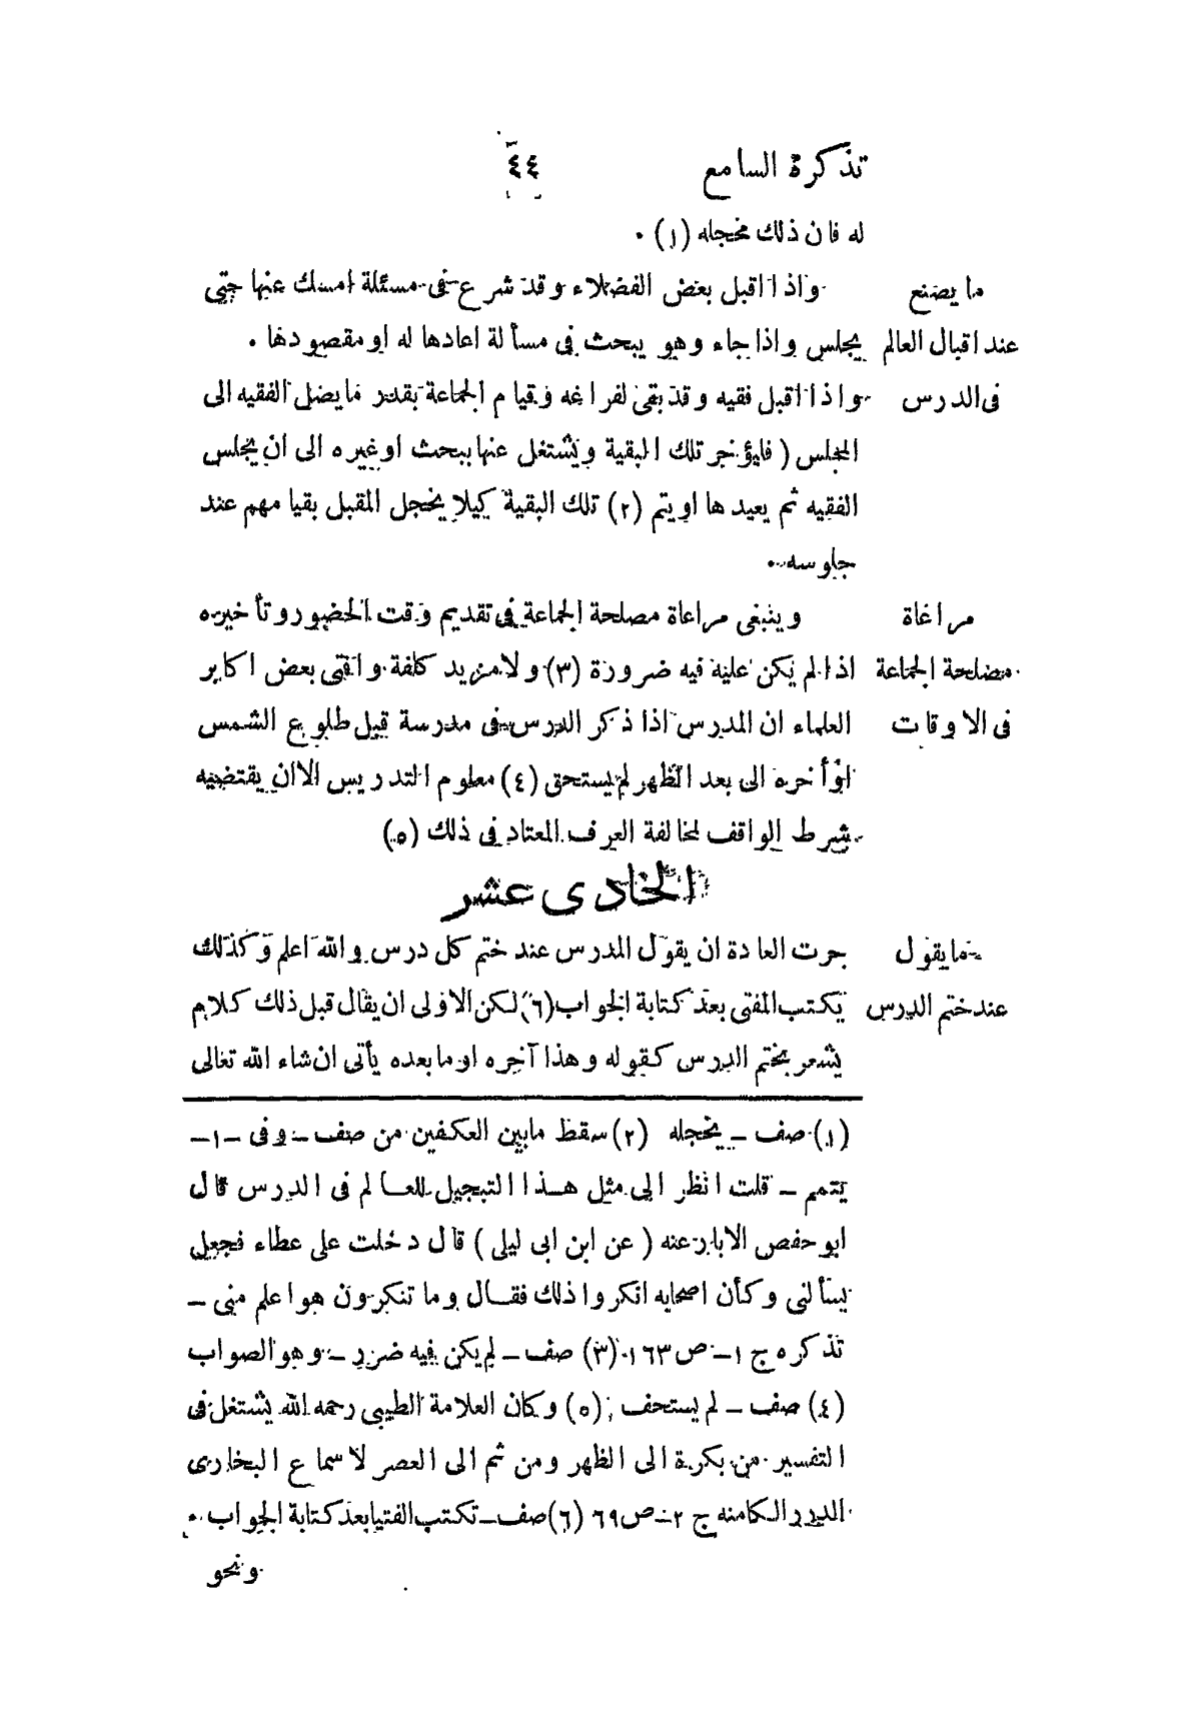 تذكرة السامع ٤٤
له فان ذلك مخجله (١) .
ما يصنع واذا اقبل بعض الفضلاء وقد شرع فى مسئلة امسك عنها حتى
عند اقبال العالم يجلس واذا جاء وهو يبحث فى مسألة اعادها له او مقصودها .
فى الدرس واذا اقبل فقيه وقد بقى لفراغه وقيام الجماعة بقدر ما يصل الفقيه الى
المجلس ( فليؤخر تلك البقية ويشتغل عنها ببحث او غيره الى ان يجلس
الفقيه ثم يعيدها او يتم (٢) تلك البقية كيلا يخجل المقبل بقيامهم عند
جلوسه .
مراعاة وينبغى مراعاة مصلحة الجماعة فى تقديم وقت الحضور وتأخيره
مصلحة الجماعة اذا لم يكن عليه فيه ضرورة (٣) ولا مزيد كلفة وافتى بعض اكابر
فى الاوقات العلماء ان المدرس اذا ذكر الدرس فى مدرسة قبل طلوع الشمس
او أخره الى بعد الظهر لم يستحق (٤) معلوم التدريس الا ان يقتضيه
شرط الواقف لمخالفة العرف المعتاد فى ذلك (٥)
الحادى عشر
ما يقول جرت العادة ان يقول المدرس عند ختم كل درس والله اعلم وكذلك
عند ختم الدرس يكتب المفتى بعد كتابة الجواب (٦) لكن الاولى ان يقال قبل ذلك كلام
يشعر بختم الدرس كقوله وهذا آخره او ما بعده يأتى ان شاء الله تعالى
(١) صف – يخجله (٢) سقط مابين العكفين من صف – وفى – ١ –
يتمم – قلت انظر الى مثل هذا التبجيل للعالم فى الدرس قال
ابو حفص الابار عنه ( عن ابن ابى ليلى ) قال دخلت على عطاء فجعل
يسألنى وكأن اصحابه انكروا ذلك فقال وما تنكرون هو اعلم منى –
تذكره ج ١ – ص ١٦٣. (٣) صف – لم يكن فيه ضرر – وهو الصواب
(٤) صف – لم يستحف (٥) وكان العلامة الطيبى رحمه الله يشتغل فى
التفسير من بكرة الى الظهر ومن ثم الى العصر لاسماع البخارى
الدرر الكامنه ج ٢ – ص ٦٩ (٦) صف – تكتب الفتيا بعد كتابة الجواب .
ونحو